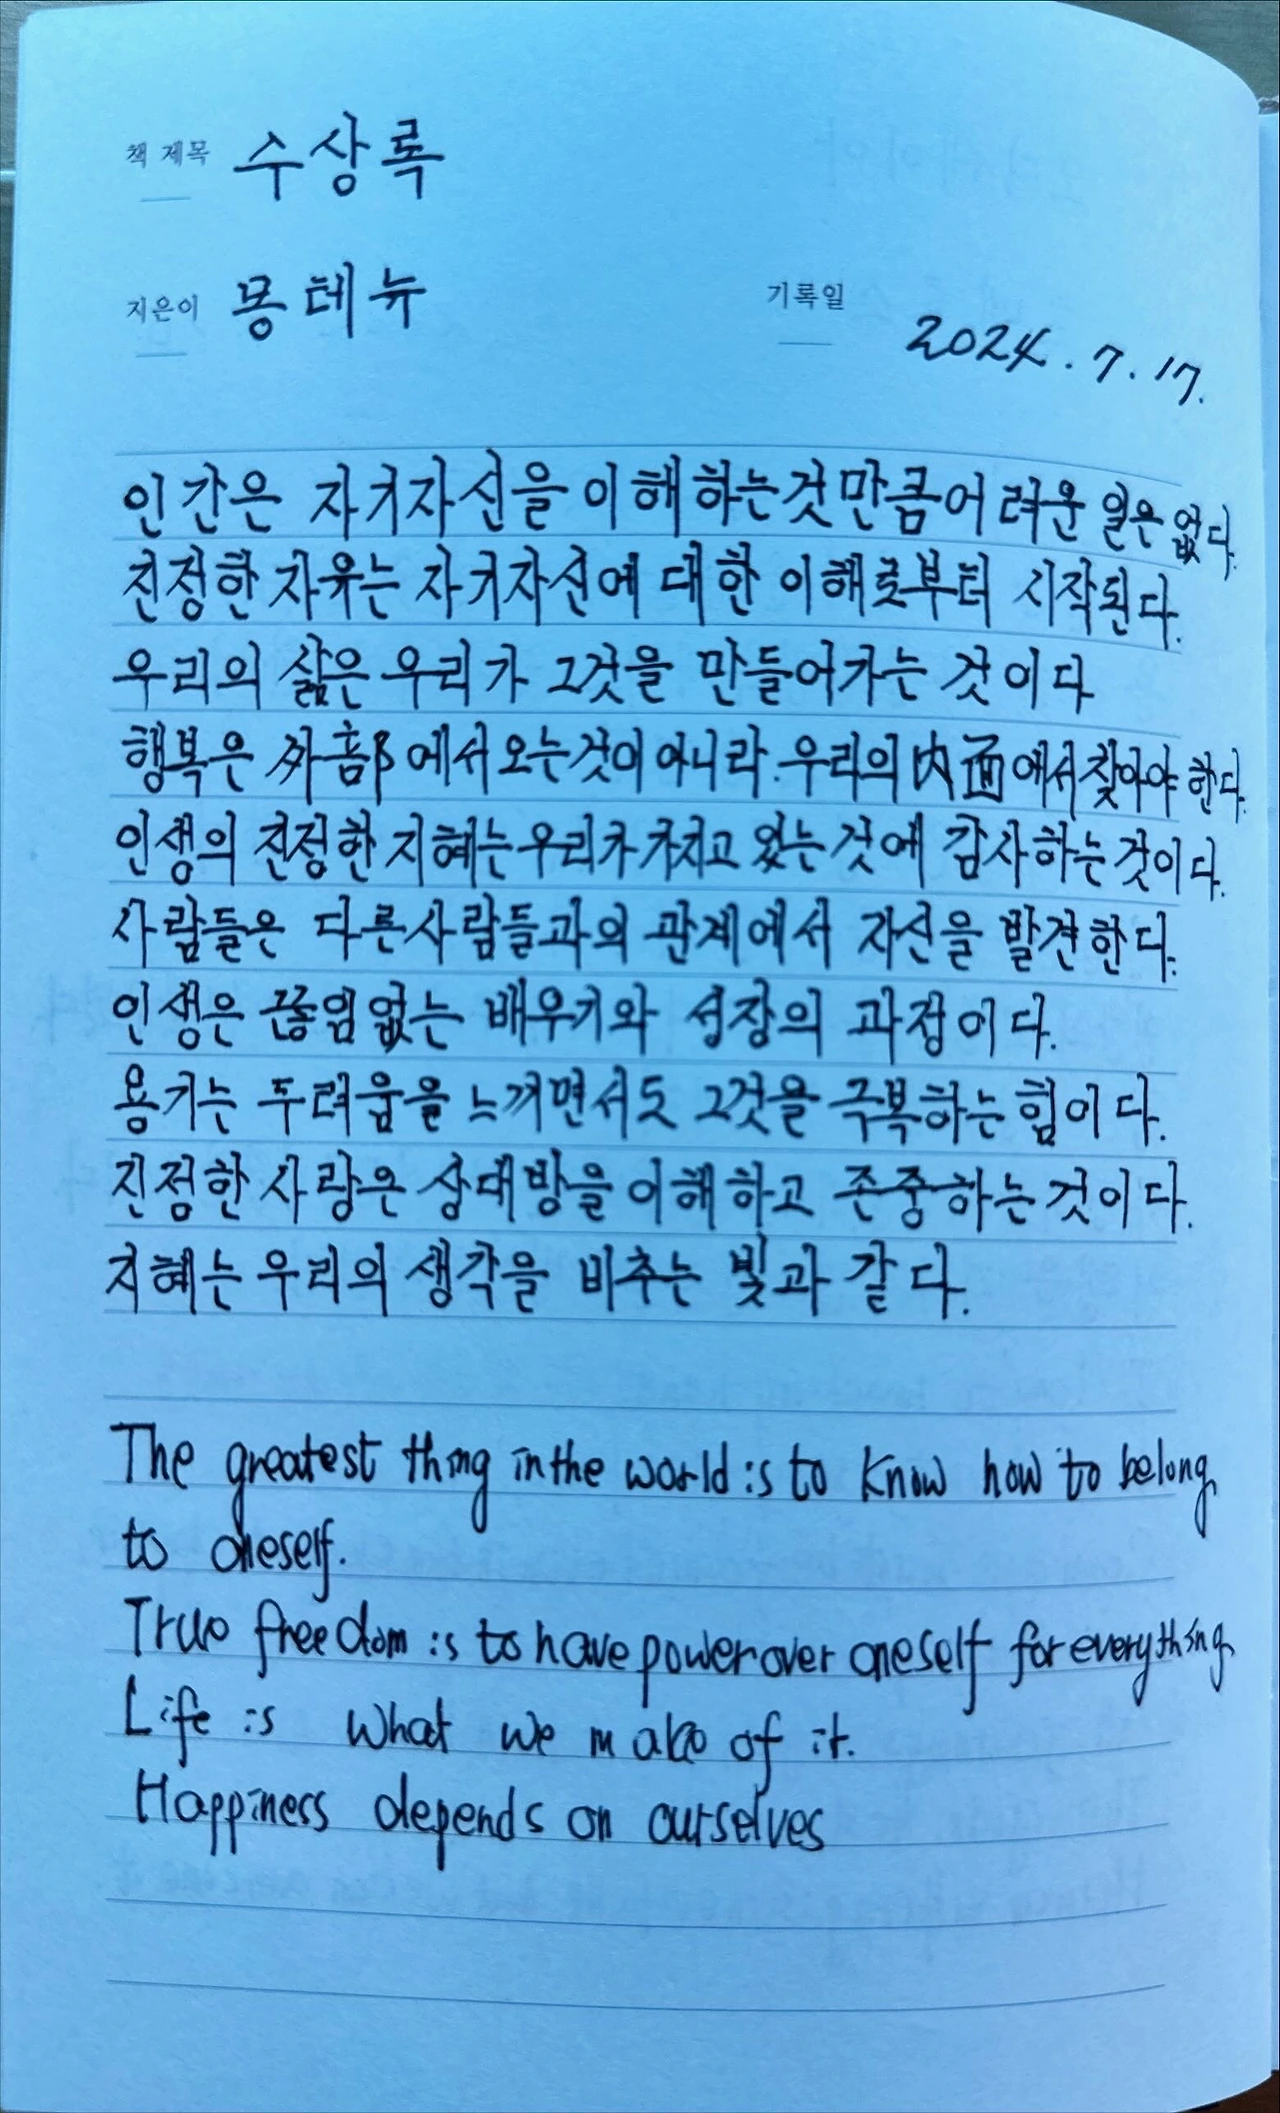 책 제목 수상록
지은이 몽테뉴
기록일 2024.7.17.
인간은 자기자신을 이해하는것만큼어려운 일은 없다.
진정한 자유는 자기자신에 대한 이해로부터 시작된다.
우리의 삶은 우리가 그것을 만들어가는 것이다
행복은 外部에서오는것이 아니라. 우리의 内面에서찾아야 한다.
인생의 진정한 지혜는 우리가 가지고 있는 것에 감사하는 것이다.
사람들은 다른사람들과의 관계에서 자신을 발견한다.
인생은 끊임없는 배우기와 성장의 과정이다.
용기는 두려움을 느끼면서도 그것을 극복하는 힘이다.
진정한 사랑은 상대방을 이해하고 존중하는 것이다.
지혜는 우리의 생각을 비추는 빛과 같다.
The greatest thing in the world is to know how to belong
to oneself.
True freedom is to have power over oneself for everything.
Life is what we make of it.
Happiness depends on ourselves